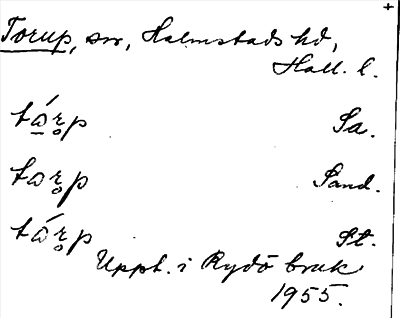 Torup, sn, Halmstads hd,
Hall. l.
tó̱r̥p Sa.
tor̥p Sand.
tór̥p St.
Uppt. i Rydö bruk
1955.